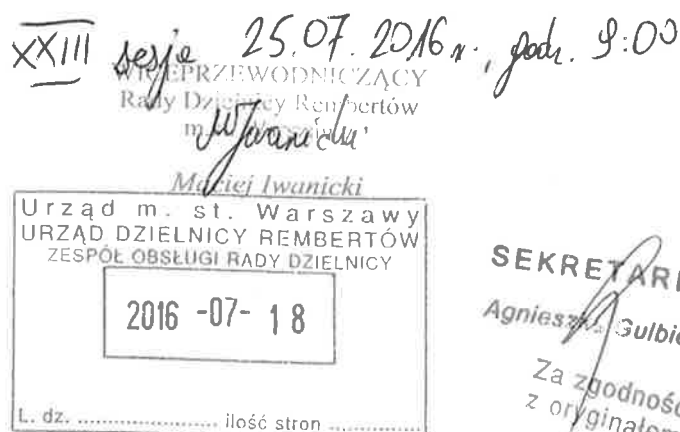 XXIII sesje 25.07.2016 r., godz. 9:00
WICEPRZEWODNICZĄCY
Rady Dzielnicy Rembertów
m.
MIwanicki
Maciej Iwanicki
Urząd m. st. Warszawy
URZĄD DZIELNICY REMBERTÓW
ZESPÓŁ OBSŁUGI RADY DZIELNICY
2016 -07- 18
L. dz. .......................... ilość stron ..................
SEKRETAR
Agnieszka Gulbie
Za zgodność
z oryginałem